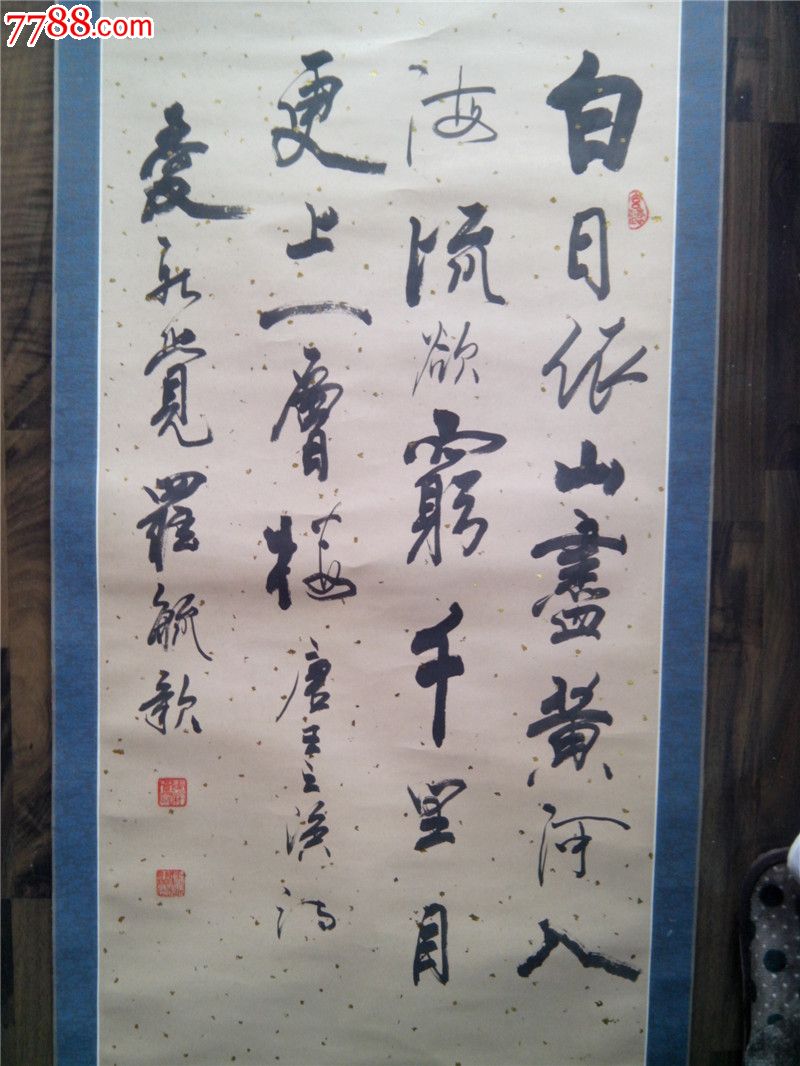 7788.com
白日依山盡黄河入
海流欲窮千里目
更上一層樓 唐王之渙詩
愛新覺羅毓